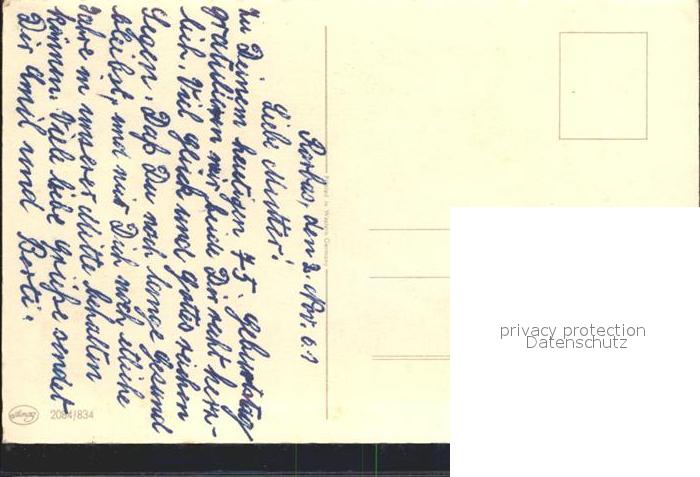 Borbis, den 2. Apr. 61
Liebe Mutter!
Zu Deinem heutigen 75. Geburtstag
gratulieren wir zwei Dir recht herz-
lich. Viel Glück und Gottes reichen
Segen. Daß Du noch lange gesund
bleibst, und wir Dich noch etliche
Jahre in unserer Mitte behalten
können. Viele liebe Grüße sendet
Dir Emil und Berti.
Printed in Western Germany
2084/834
privacy protection
Datenschutz